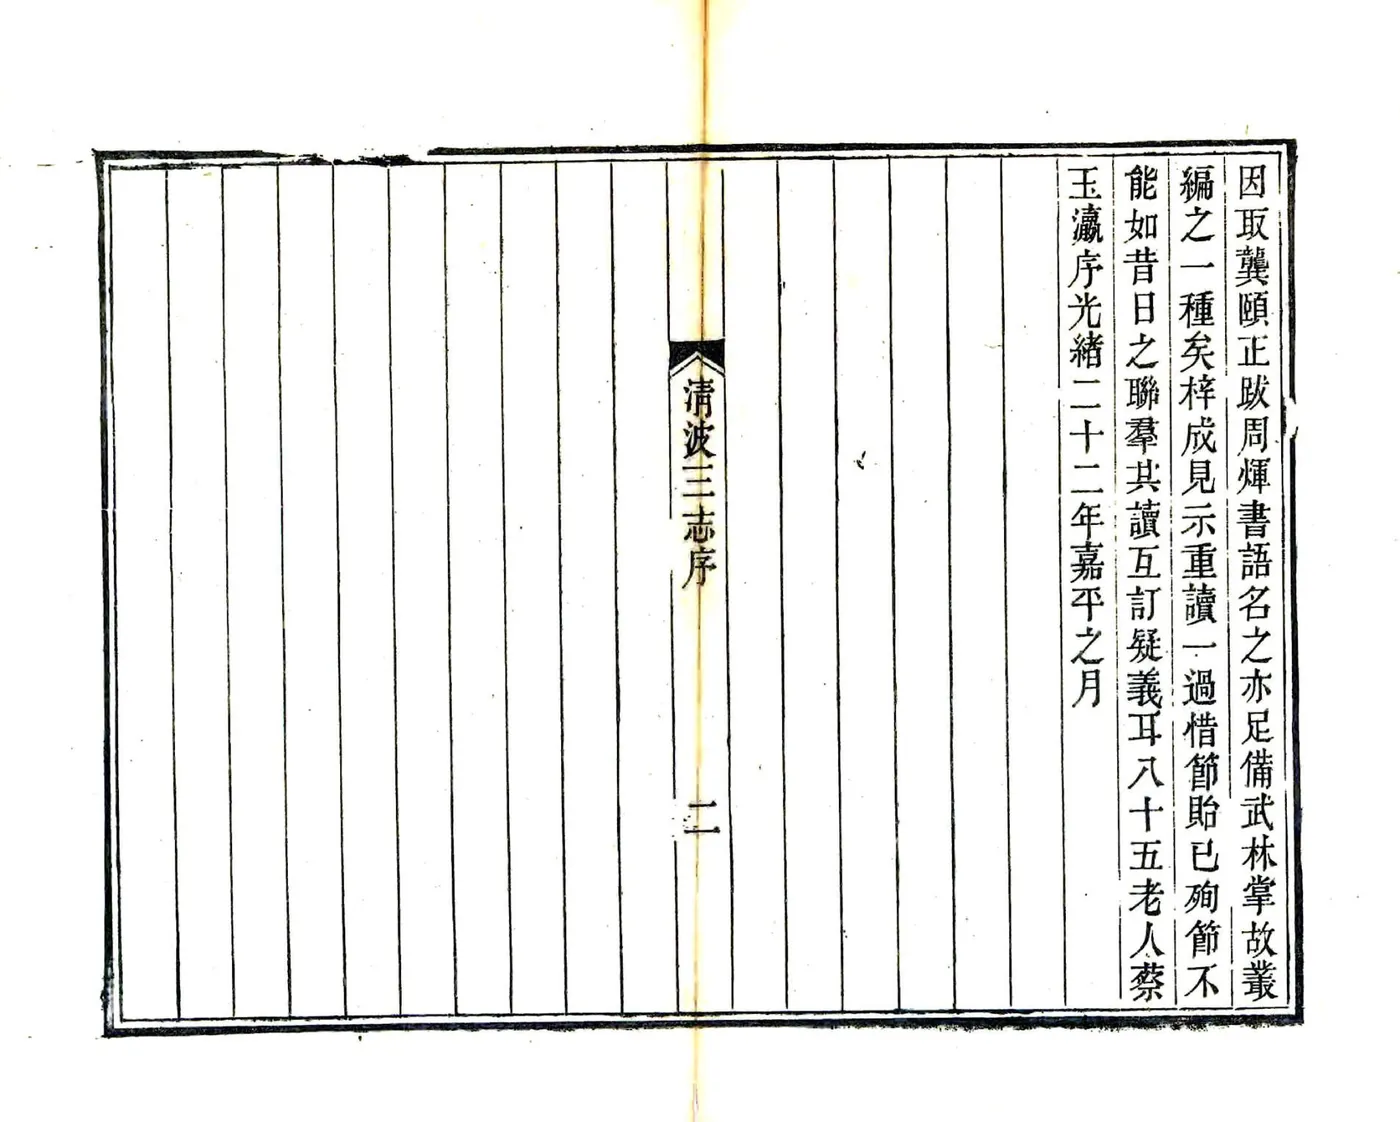 因取龔頤正跋周煇書語名之亦足備武林掌故叢
編之一種矣梓成見示重讀一過惜節貽已殉節不
能如昔日之聯羣共讀互訂疑義耳八十五老人蔡
玉瀛序光緒二十二年嘉平之月
清波三志序
二